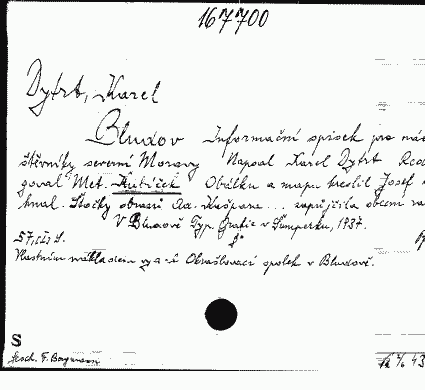 167700
Dytrt, Karel
Bludov Informační spisek pro
štěvníky severní Moravy Napsal Karel Dytrt
goval Met. Kubíček Obálku a mapu kreslil Josef
Štočky obrazů Ad. Kašpara... zapůjčila obecní
V Bludově Typ. Grafia v Šumperku, 1937.
8°
57, čís S.
Vlastním nákladem vydal Okrašlovací spolek v Bludově.
S
43